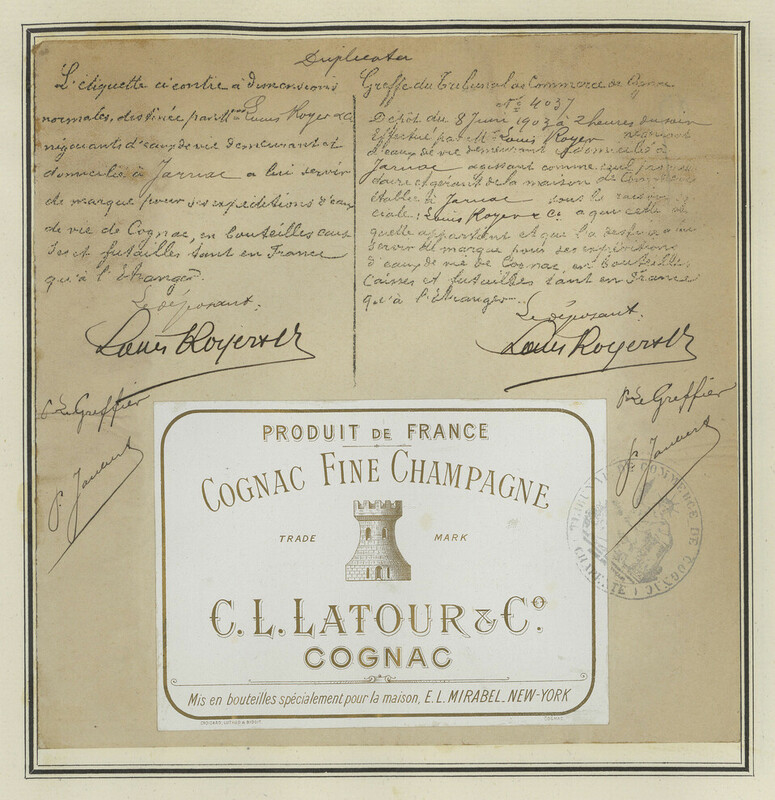 Duplicata
L'étiquette ci contre à dimensions
normales, destinée par Mr Louis Royer & Co
négociants d'eaux de vie demeurant et
domicilié à Jarnac a lui servir
de marque pour ses expéditions d'eaux
de vie de Cognac, en bouteilles cais
ses et futailles tant en France
qu'à l'étranger.
Le déposant:
Louis Royer & Co
Pr Le Greffier
Greffe du Tribunal de Commerce de Cognac
No 4037
Dépôt du 8 Juin 1903 à 2 heures du soir
Effectué par Mr Louis Royer négociant
d'eaux de vie demeurant et domicilié à
Jarnac agissant comme
et gérant de la maison de Commerce
établie à Jarnac sous la raison so
ciale: Louis Royer & Co. a qui cette éti
quette appartient et qui l'a
servir de marque pour ses expéditions
d'eaux de vie de Cognac, en bouteilles
Caisses et futailles tant en France
qu'à l'étranger.
Le déposant:
Louis Royer & Co
Pr Le Greffier
TRIBUNAL DE COMMERCE DE COGNAC
CHARENTE
PRODUIT DE FRANCE
COGNAC FINE CHAMPAGNE
TRADE MARK
C. L. LATOUR & Co.
COGNAC
Mis en bouteilles spécialement pour la maison, E. L. MIRABEL_NEW-YORK
COGNAC